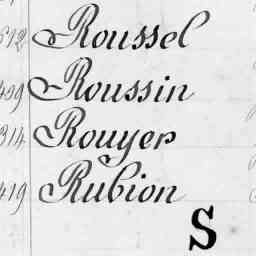 512 Roussel
499 Roussin
314 Rouyer
419 Rubion
S